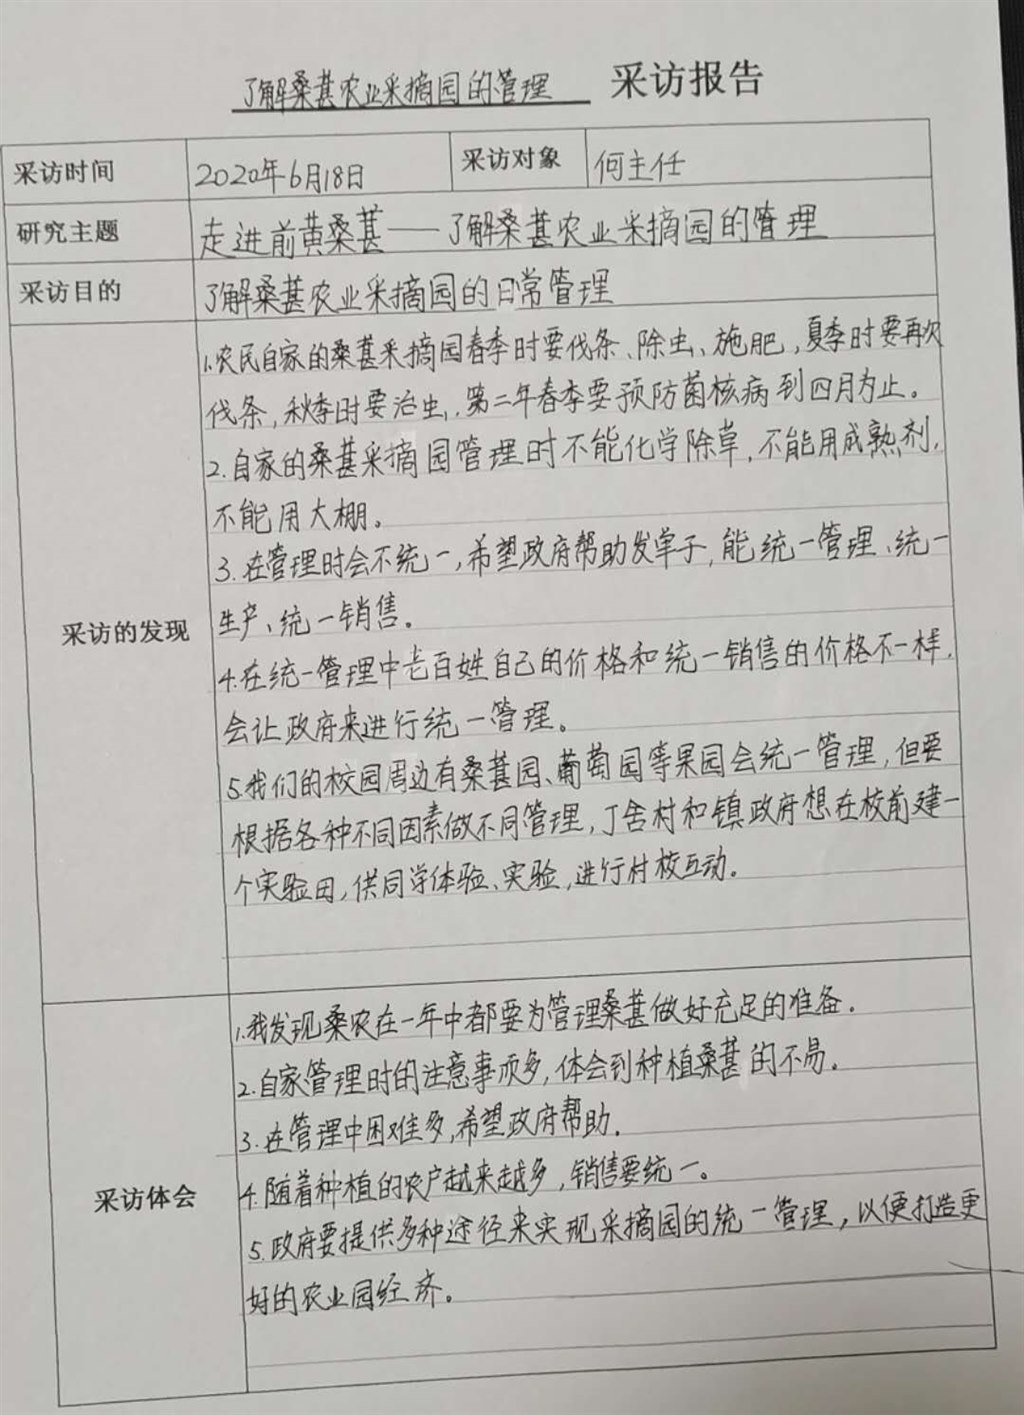 了解桑葚农业采摘园的管理 采访报告
采访时间 2020年6月18日 采访对象 何主任
研究主题 走进前黄桑葚——了解桑葚农业采摘园的管理
采访目的 了解桑葚农业采摘园的日常管理
采访的发现
1.农民自家的桑葚采摘园春季时要伐条、除虫、施肥,夏季时要再次
伐条,秋季时要治虫,第二年春季要预防菌核病到四月为止。
2.自家的桑葚采摘园管理时不能化学除草,不能用成熟剂,
不能用大棚。
3.在管理时会不统一,希望政府帮助发单子,能统一管理、统一
生产、统一销售。
4.在统一管理中老百姓自己的价格和统一销售的价格不一样,
会让政府来进行统一管理。
5.我们的校园周边有桑葚园、葡萄园等果园会统一管理,但要
根据各种不同因素做不同管理,丁舍村和镇政府想在校前建一
个实验田,供同学体验、实验,进行村校互动。
采访体会
1.我发现桑农在一年中都要为管理桑葚做好充足的准备.
2.自家管理时的注意事项多,体会到种植桑葚的不易.
3.在管理中困难多,希望政府帮助.
4.随着种植的农户越来越多,销售要统一。
5.政府要提供多种途径来实现采摘园的统一管理,以便打造更
好的农业园经济。